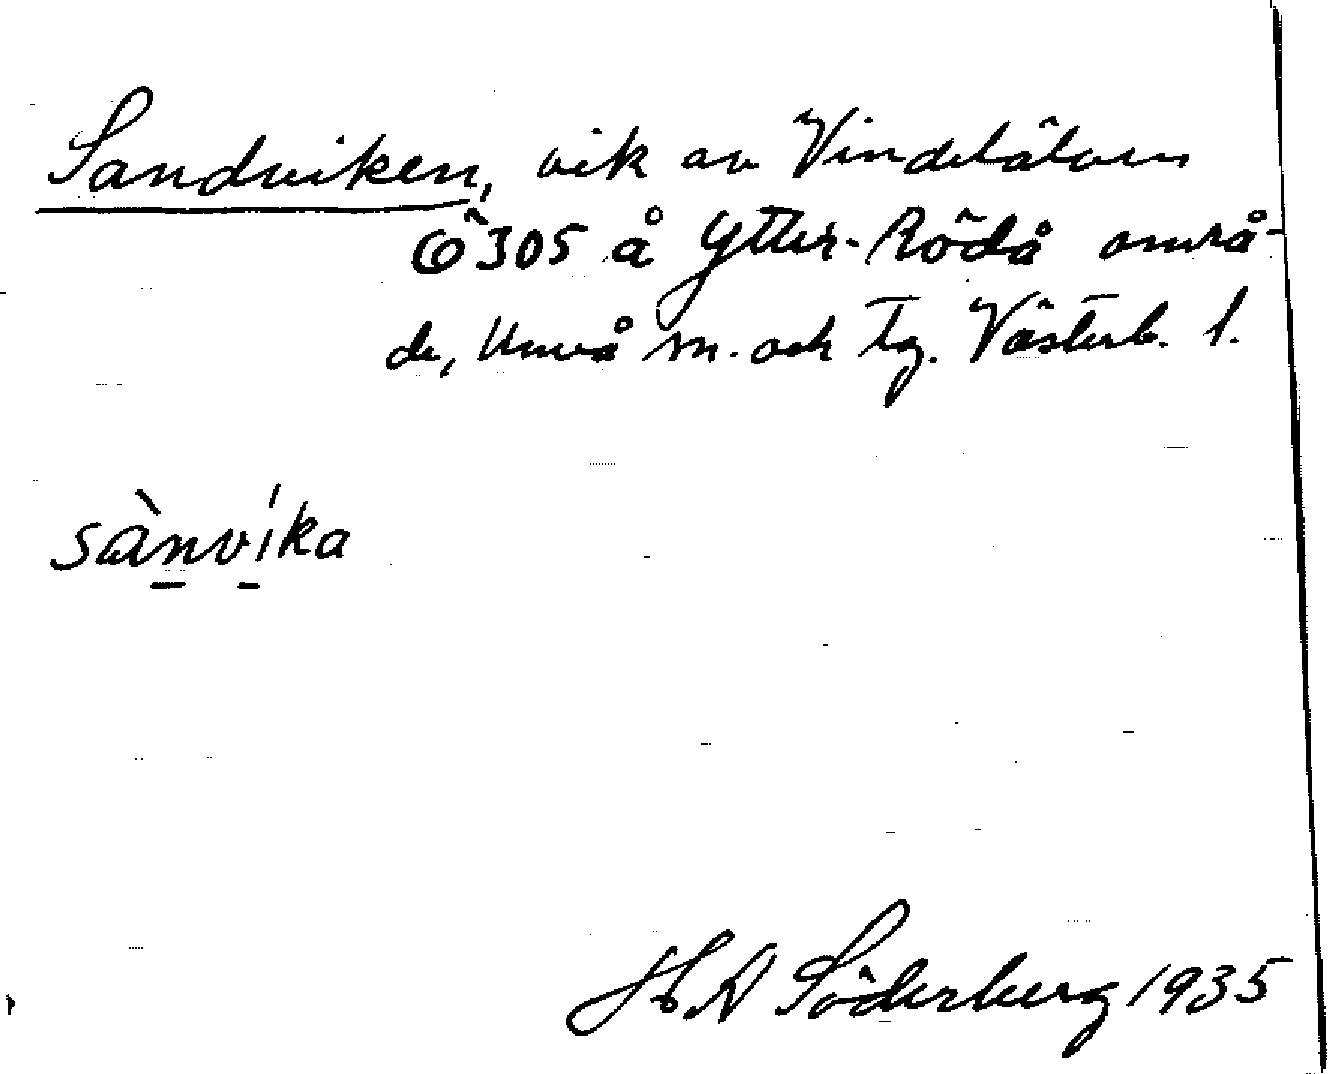 Sandviken, vik av Vindelälven
Ö305 å Ytter-Rödå områ-
de, Umeå m. och tg. Västerb. l.
sànvíka
H.N Söderberg 1935